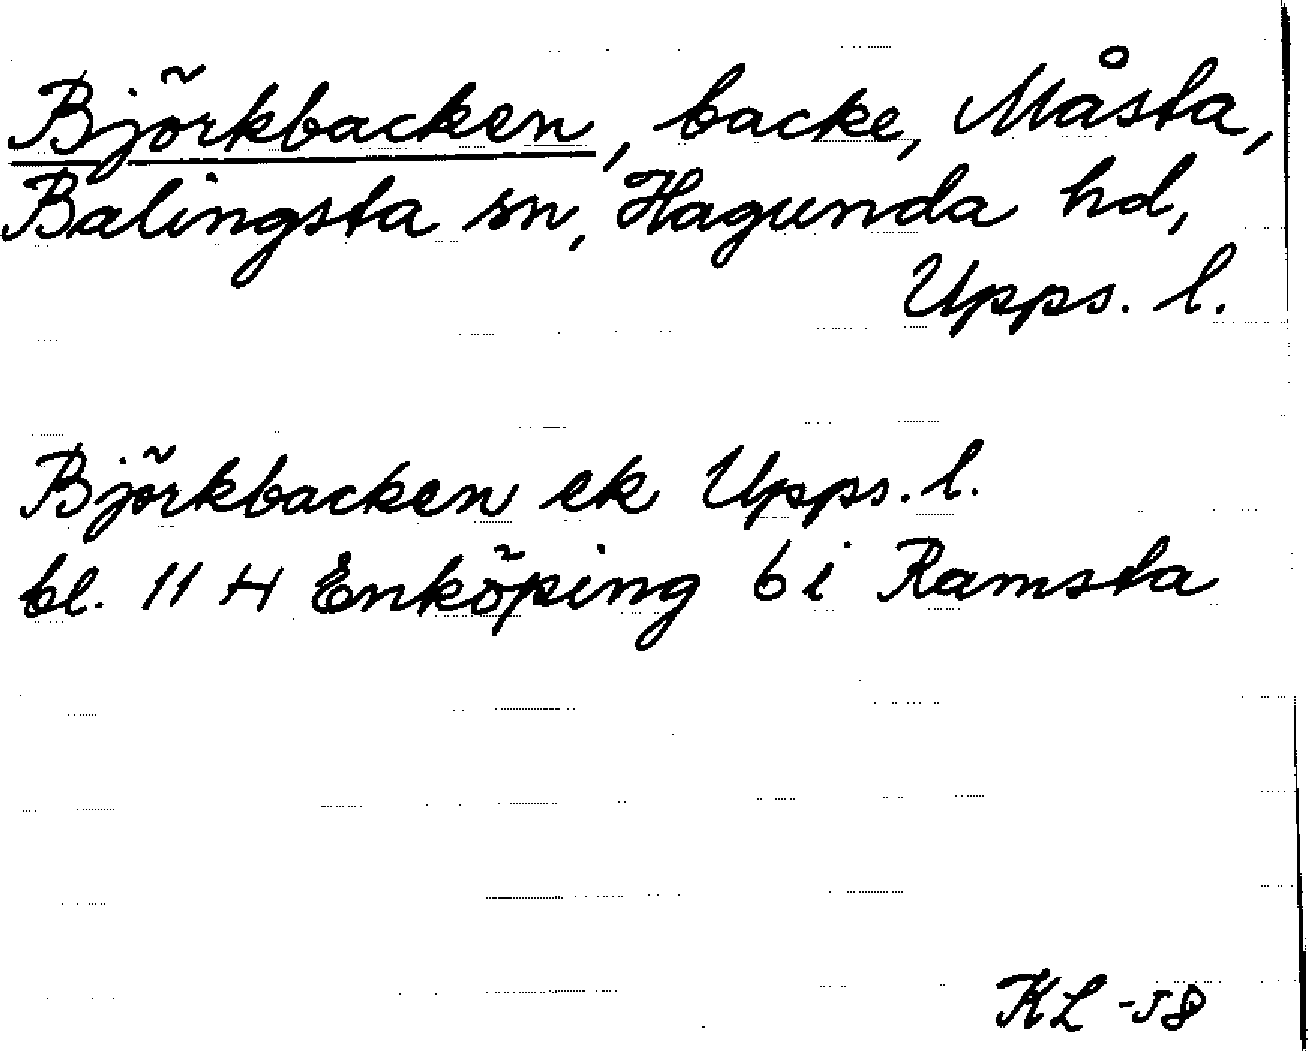 Björkbacken, backe, Måsta,
Balingsta sn, Hagunda hd,
Upps. l.
Björkbacken ek Upps. l.
bl. 11 H Enköping 6 i Ramsta
KL -58